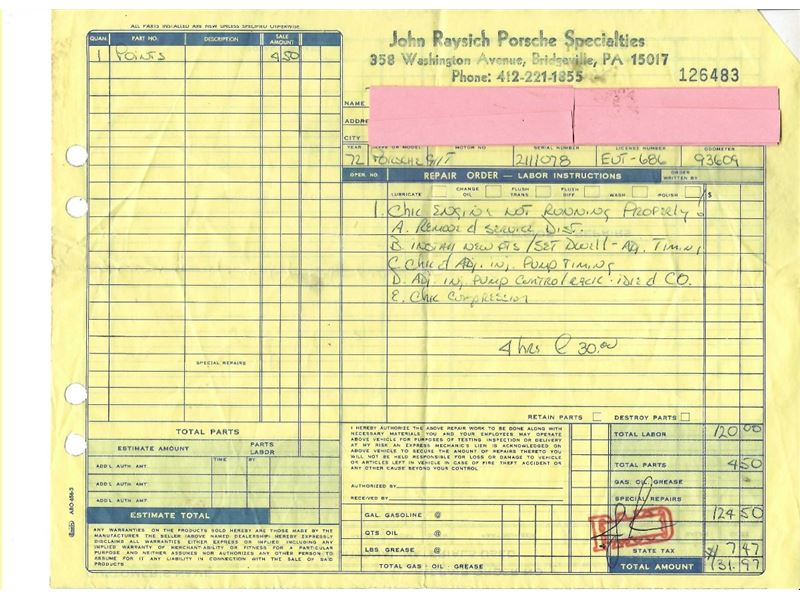 ALL PARTS INSTALLED ARE NEW UNLESS SPECIFIED OTHERWISE
QUAN. PART NO. DESCRIPTION SALE AMOUNT
1 POINTS 4 50
John Raysich Porsche Specialties
358 Washington Avenue, Bridgeville, PA 15017
Phone: 412-221-1855
126483
NAME
ADDRE
CITY
YEAR MODEL MOTOR NO SERIAL NUMBER LICENSE NUMBER ODOMETER
72 PORSCHE 911T 2111078 EUT-686 93609
OPER. NO. REPAIR ORDER — LABOR INSTRUCTIONS ORDER WRITTEN BY
LUBRICATE CHANGE OIL FLUSH TRANS. FLUSH DIFF WASH POLISH $
1. Chk ENGINE NOT RUNNING PROPERLY.
A. REMOVE & SERVICE DIST.
B. INSTALL NEW PTS / SET DWELL - ADJ. TIMING
C. Chk & ADJ. INJ. PUMP TIMING
D. ADJ. INJ. PUMP CONTROL RACK - IDLE & CO.
E. Chk COMPRESSION
4 hrs @ 30.00
SPECIAL REPAIRS
RETAIN PARTS DESTROY PARTS
TOTAL PARTS
ESTIMATE AMOUNT PARTS LABOR
TIME BY
ADD'L AUTH AMT
ADD'L AUTH AMT
ADD'L AUTH AMT
ESTIMATE TOTAL
ARO-656-3
ANY WARRANTIES ON THE PRODUCTS SOLD HEREBY ARE THOSE MADE BY THE
MANUFACTURER THE SELLER (ABOVE NAMED DEALERSHIP) HEREBY EXPRESSLY
DISCLAIMS ALL WARRANTIES EITHER EXPRESS OR IMPLIED INCLUDING ANY
IMPLIED WARRANTY OF MERCHANTABILITY OR FITNESS FOR A PARTICULAR
PURPOSE, AND NEITHER ASSUMES NOR AUTHORIZES ANY OTHER PERSON TO
ASSUME FOR IT ANY LIABILITY IN CONNECTION WITH THE SALE OF SAID
PRODUCTS
I HEREBY AUTHORIZE THE ABOVE REPAIR WORK TO BE DONE ALONG WITH
NECESSARY MATERIALS YOU AND YOUR EMPLOYEES MAY OPERATE
ABOVE VEHICLE FOR PURPOSES OF TESTING INSPECTION OR DELIVERY
AT MY RISK AN EXPRESS MECHANIC'S LIEN IS ACKNOWLEDGED ON
ABOVE VEHICLE TO SECURE THE AMOUNT OF REPAIRS THERETO YOU
WILL NOT BE HELD RESPONSIBLE FOR LOSS OR DAMAGE TO VEHICLE
OR ARTICLES LEFT IN VEHICLE IN CASE OF FIRE THEFT ACCIDENT OR
ANY OTHER CAUSE BEYOND YOUR CONTROL
AUTHORIZED BY
RECEIVED BY
GAL GASOLINE @
QTS OIL @
LBS GREASE @
TOTAL GAS - OIL - GREASE
TOTAL LABOR 120 00
TOTAL PARTS 4 50
GAS, OIL GREASE
SPECIAL REPAIRS
124 50
STATE TAX 7.47
TOTAL AMOUNT 131.97